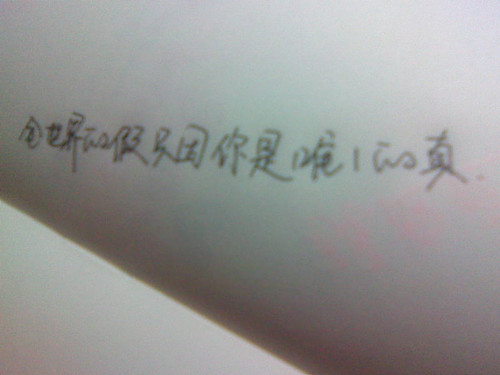 全世界的假只因你是唯1的真.